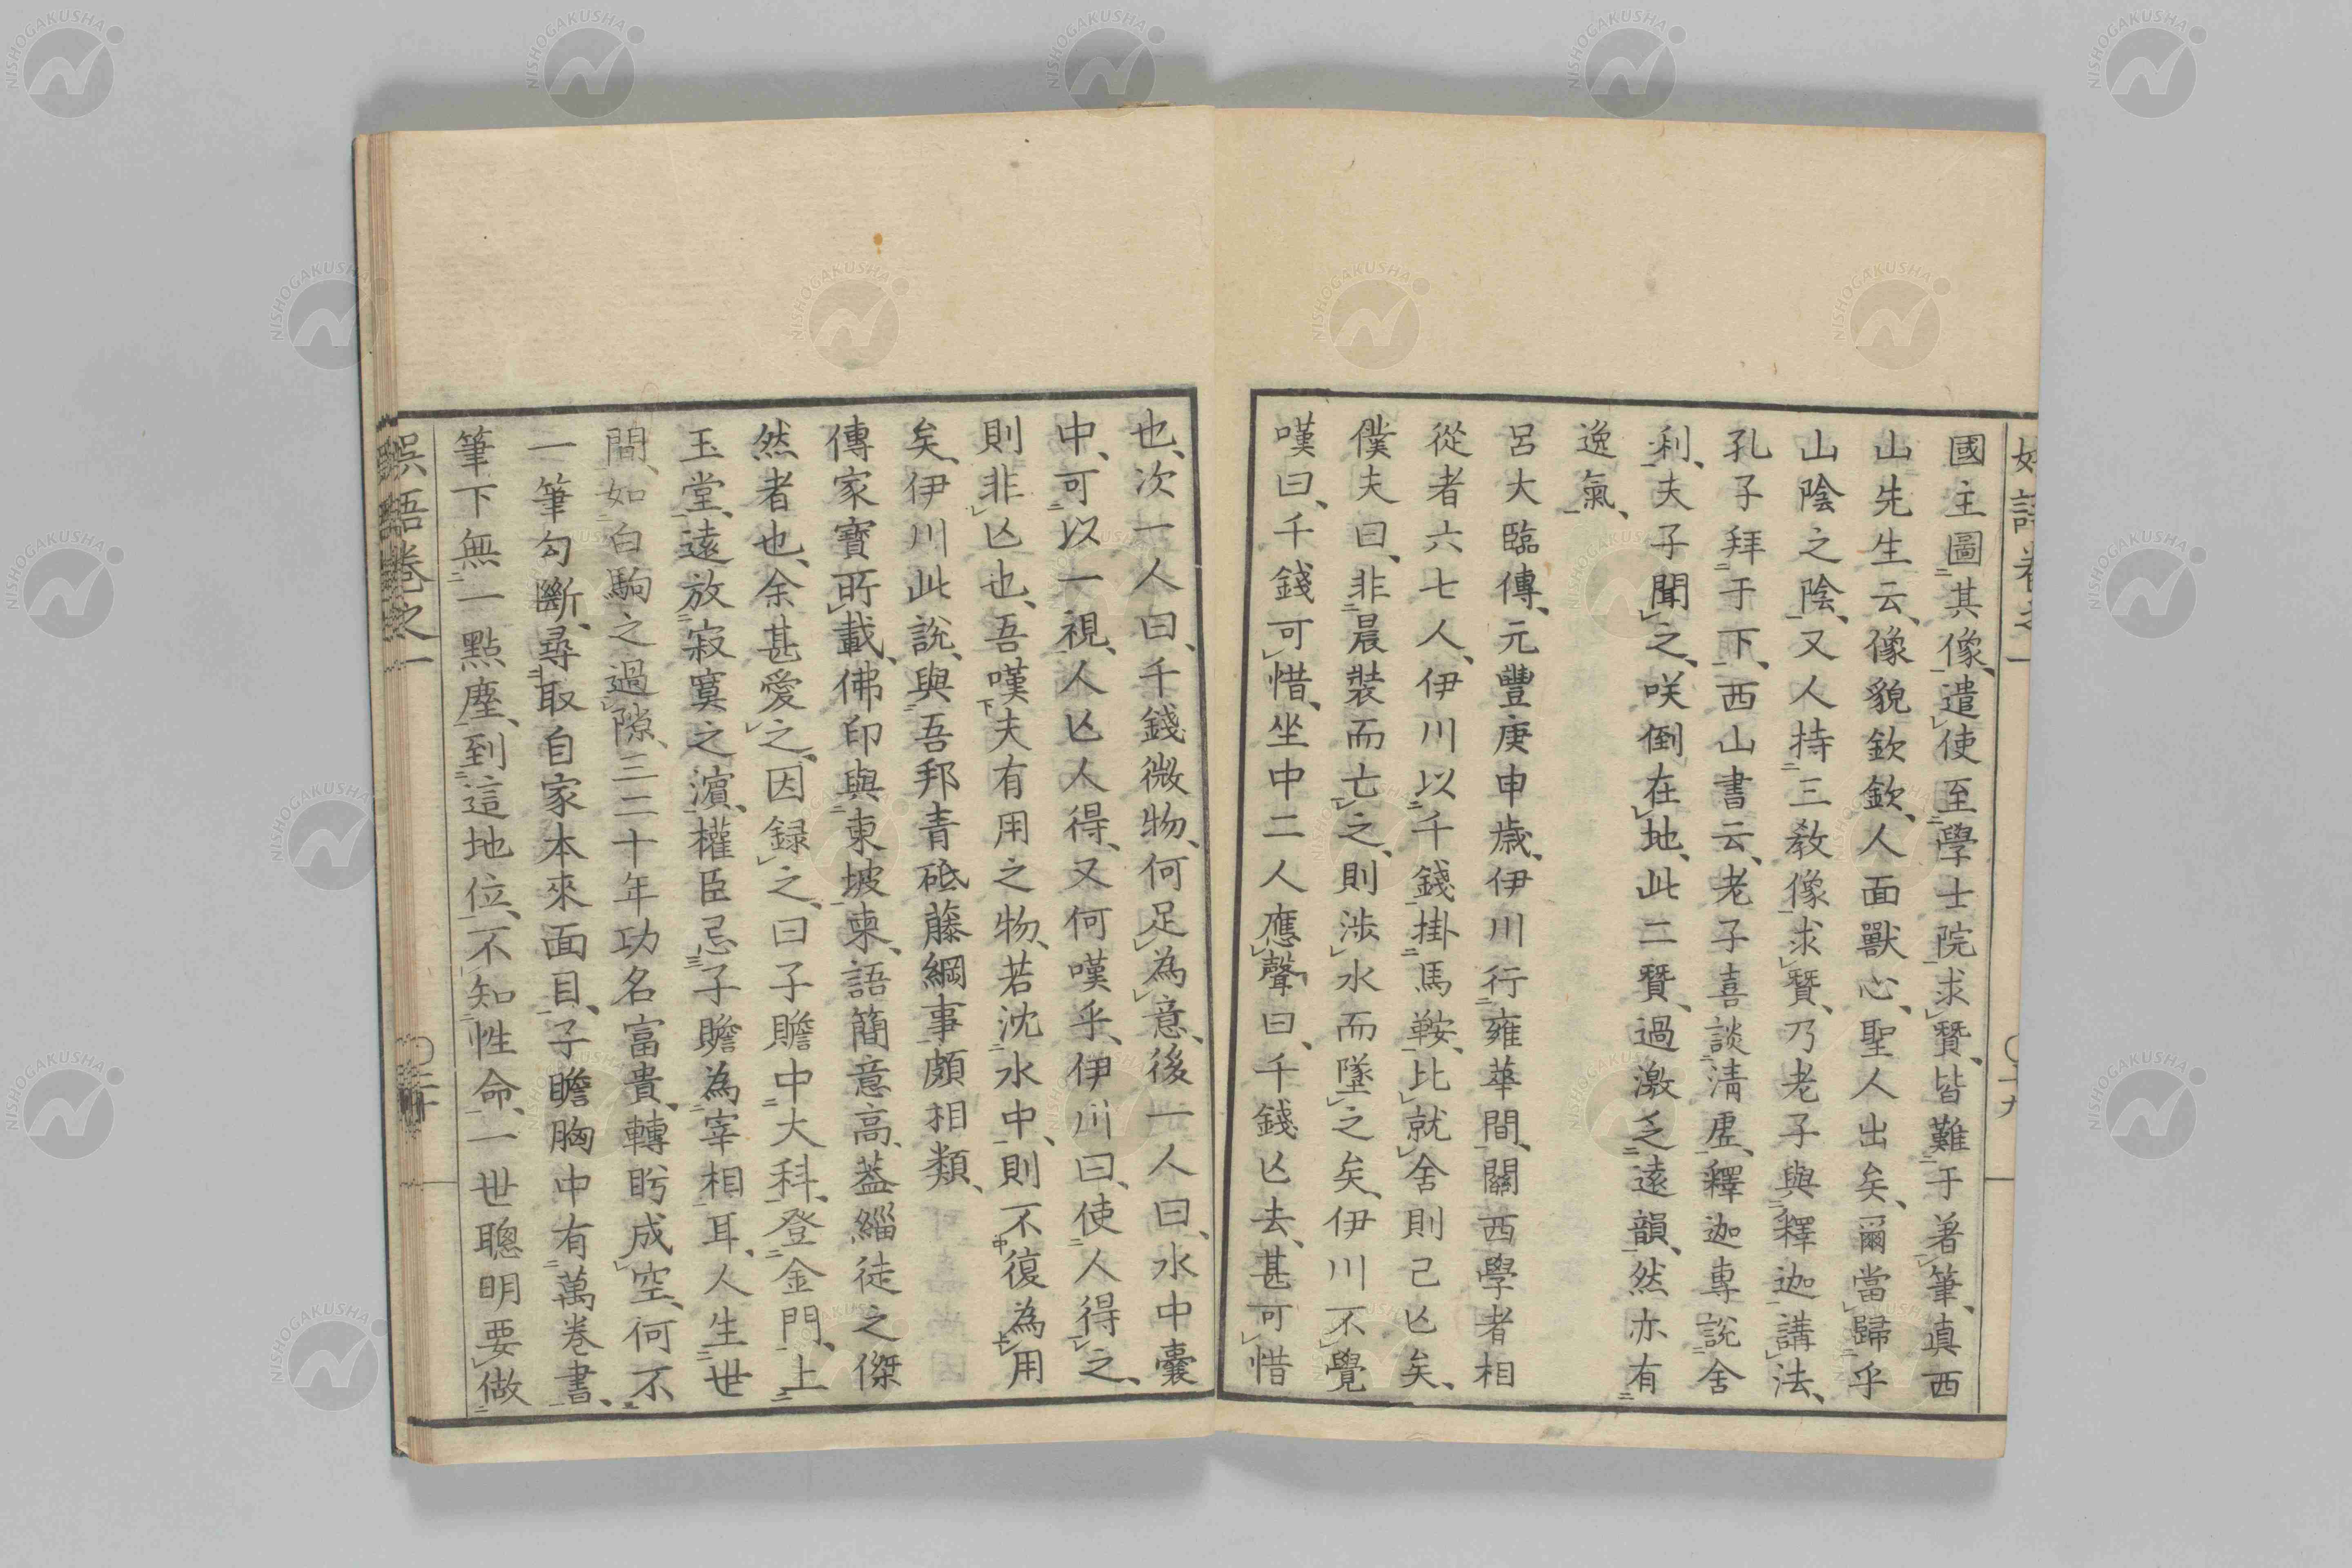 國主圖其像、遣使至學士院求贊、皆難于著筆、真西
山先生云、像貌欽欽、人面獸心、聖人出矣、爾當歸乎
山陰之陰、又人持三教像求贊、乃老子與釋迦講法、
孔子拜于下、西山書云、老子喜談清虛、釋迦專說舍
利、夫子聞之、咲倒在地、此二贊、過激乏遠韻、然亦有
逸氣、
呂大臨傳、元豐庚申歲、伊川行雍華間、關西學者相
從者六七人、伊川以千錢掛馬鞍、比就舍則已亾矣、
僕夫曰、非晨裝而亡之、則涉水而墜之矣、伊川不覺
嘆曰、千錢可惜、坐中二人應聲曰、千錢亾去、甚可惜
也、次一人曰、千錢微物、何足為意、後一人曰、水中囊
中、可以一視、人亾人得、又何嘆乎、伊川曰、使人得之、
則非亾也、吾嘆夫有用之物、若沈水中、則不復為用
矣、伊川此說、與吾邦青砥藤綱事頗相類、
傳家寶所載、佛印與東坡柬、語簡意高、蓋緇徒之傑
然者也、余甚愛之、因録之、曰子瞻中大科、登金門、上
玉堂、遠放寂寞之濵、權臣忌子瞻為宰相耳、人生世
間、如白駒之過隙、三二十年功名富貴、轉盻成空、何不
一筆勾斷、尋取自家本來面目、子瞻胸中有萬卷書、
筆下無一點塵、到這地位、不知性命、一世聰明要做
娯語卷之一
〇二十